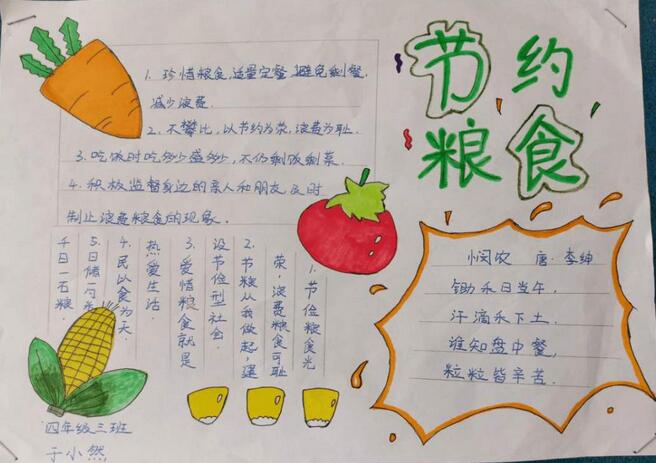 节约
粮食
1. 珍惜粮食,适量定餐,避免剩餐,
减少浪费.
2. 不攀比,以节约为荣,浪费为耻.
3. 吃饭时吃多少盛多少,不仍剩饭剩菜.
4. 积极监督身边的亲人和朋友及时
制止浪费粮食的现象.
1.节俭粮食光
荣,浪费粮食可耻
2.节粮从我做起,建
设节俭型社会.
3.爱惜粮食就是
热爱生活.
4.民以食为天.
5.日储一勺
千日一石粮.
悯农 唐·李绅
锄禾日当午,
汗滴禾下土.
谁知盘中餐,
粒粒皆辛苦.
四年级三班
于小然